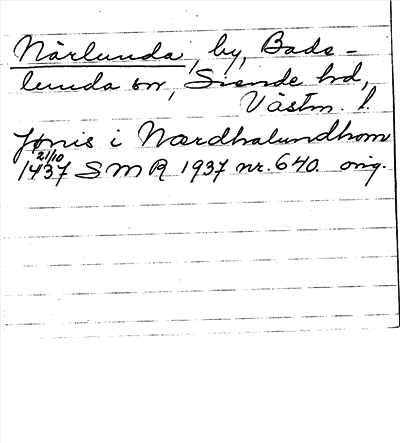 Närlunda, by, Bade-
lunda sn, Siende hd,
Västm. l.
Jönis i Nærdhalundhom
21/10
1437 SMR 1937 nr. 640. orig.